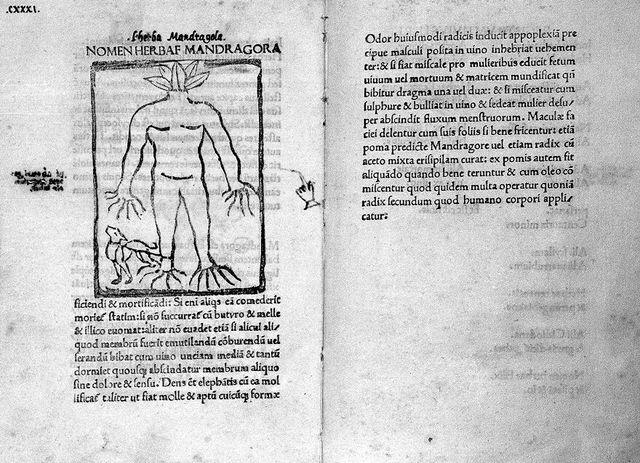 .CXXXI.
herba Mandragola.
NOMEN HERBAE MANDRAGORA
ficiendi & mortificādi: Si eni aliqs eā comederit
moriet̄ statim: si nō succurrat̄ cū butyro & melle
& illico euomat: aliter nō euadet etiā si alicui ali
quod membrū fuerit emutilandū cōburendū uel
serandū bibat cum uino unciam mediā & tantū
dormiet quousq; abscindatur membrum aliquo
sine dolore & sensu. Dens et̄ elephātis cū ea mol
lificat̄ taliter ut fiat molle & aptū cuicūq; formæ
Odor huiusmodi radicis inducit appoplexiā pre
cipue masculi posita in uino inhebriat uehemen
ter: & si fiat miscale pro mulieribus educit fetum
uiuum uel mortuum & matricem mundificat qñ
bibitur dragma una uel duæ: & si misceatur cum
sulphure & bulliat in uino & sedeat mulier desu/
per abscindit fluxum menstruorum. Maculæ fa
ciei delentur cum suis foliis si bene fricentur: etiā
poma predicte Mandragore uel etiam radix cū
aceto mixta erisipilam curat: ex pomis autem fit
aliquādo quando bene teruntur & cum oleo cō
miscentur quod quidem multa operatur quoniā
radix secundum quod humano corpori appli/
catur: